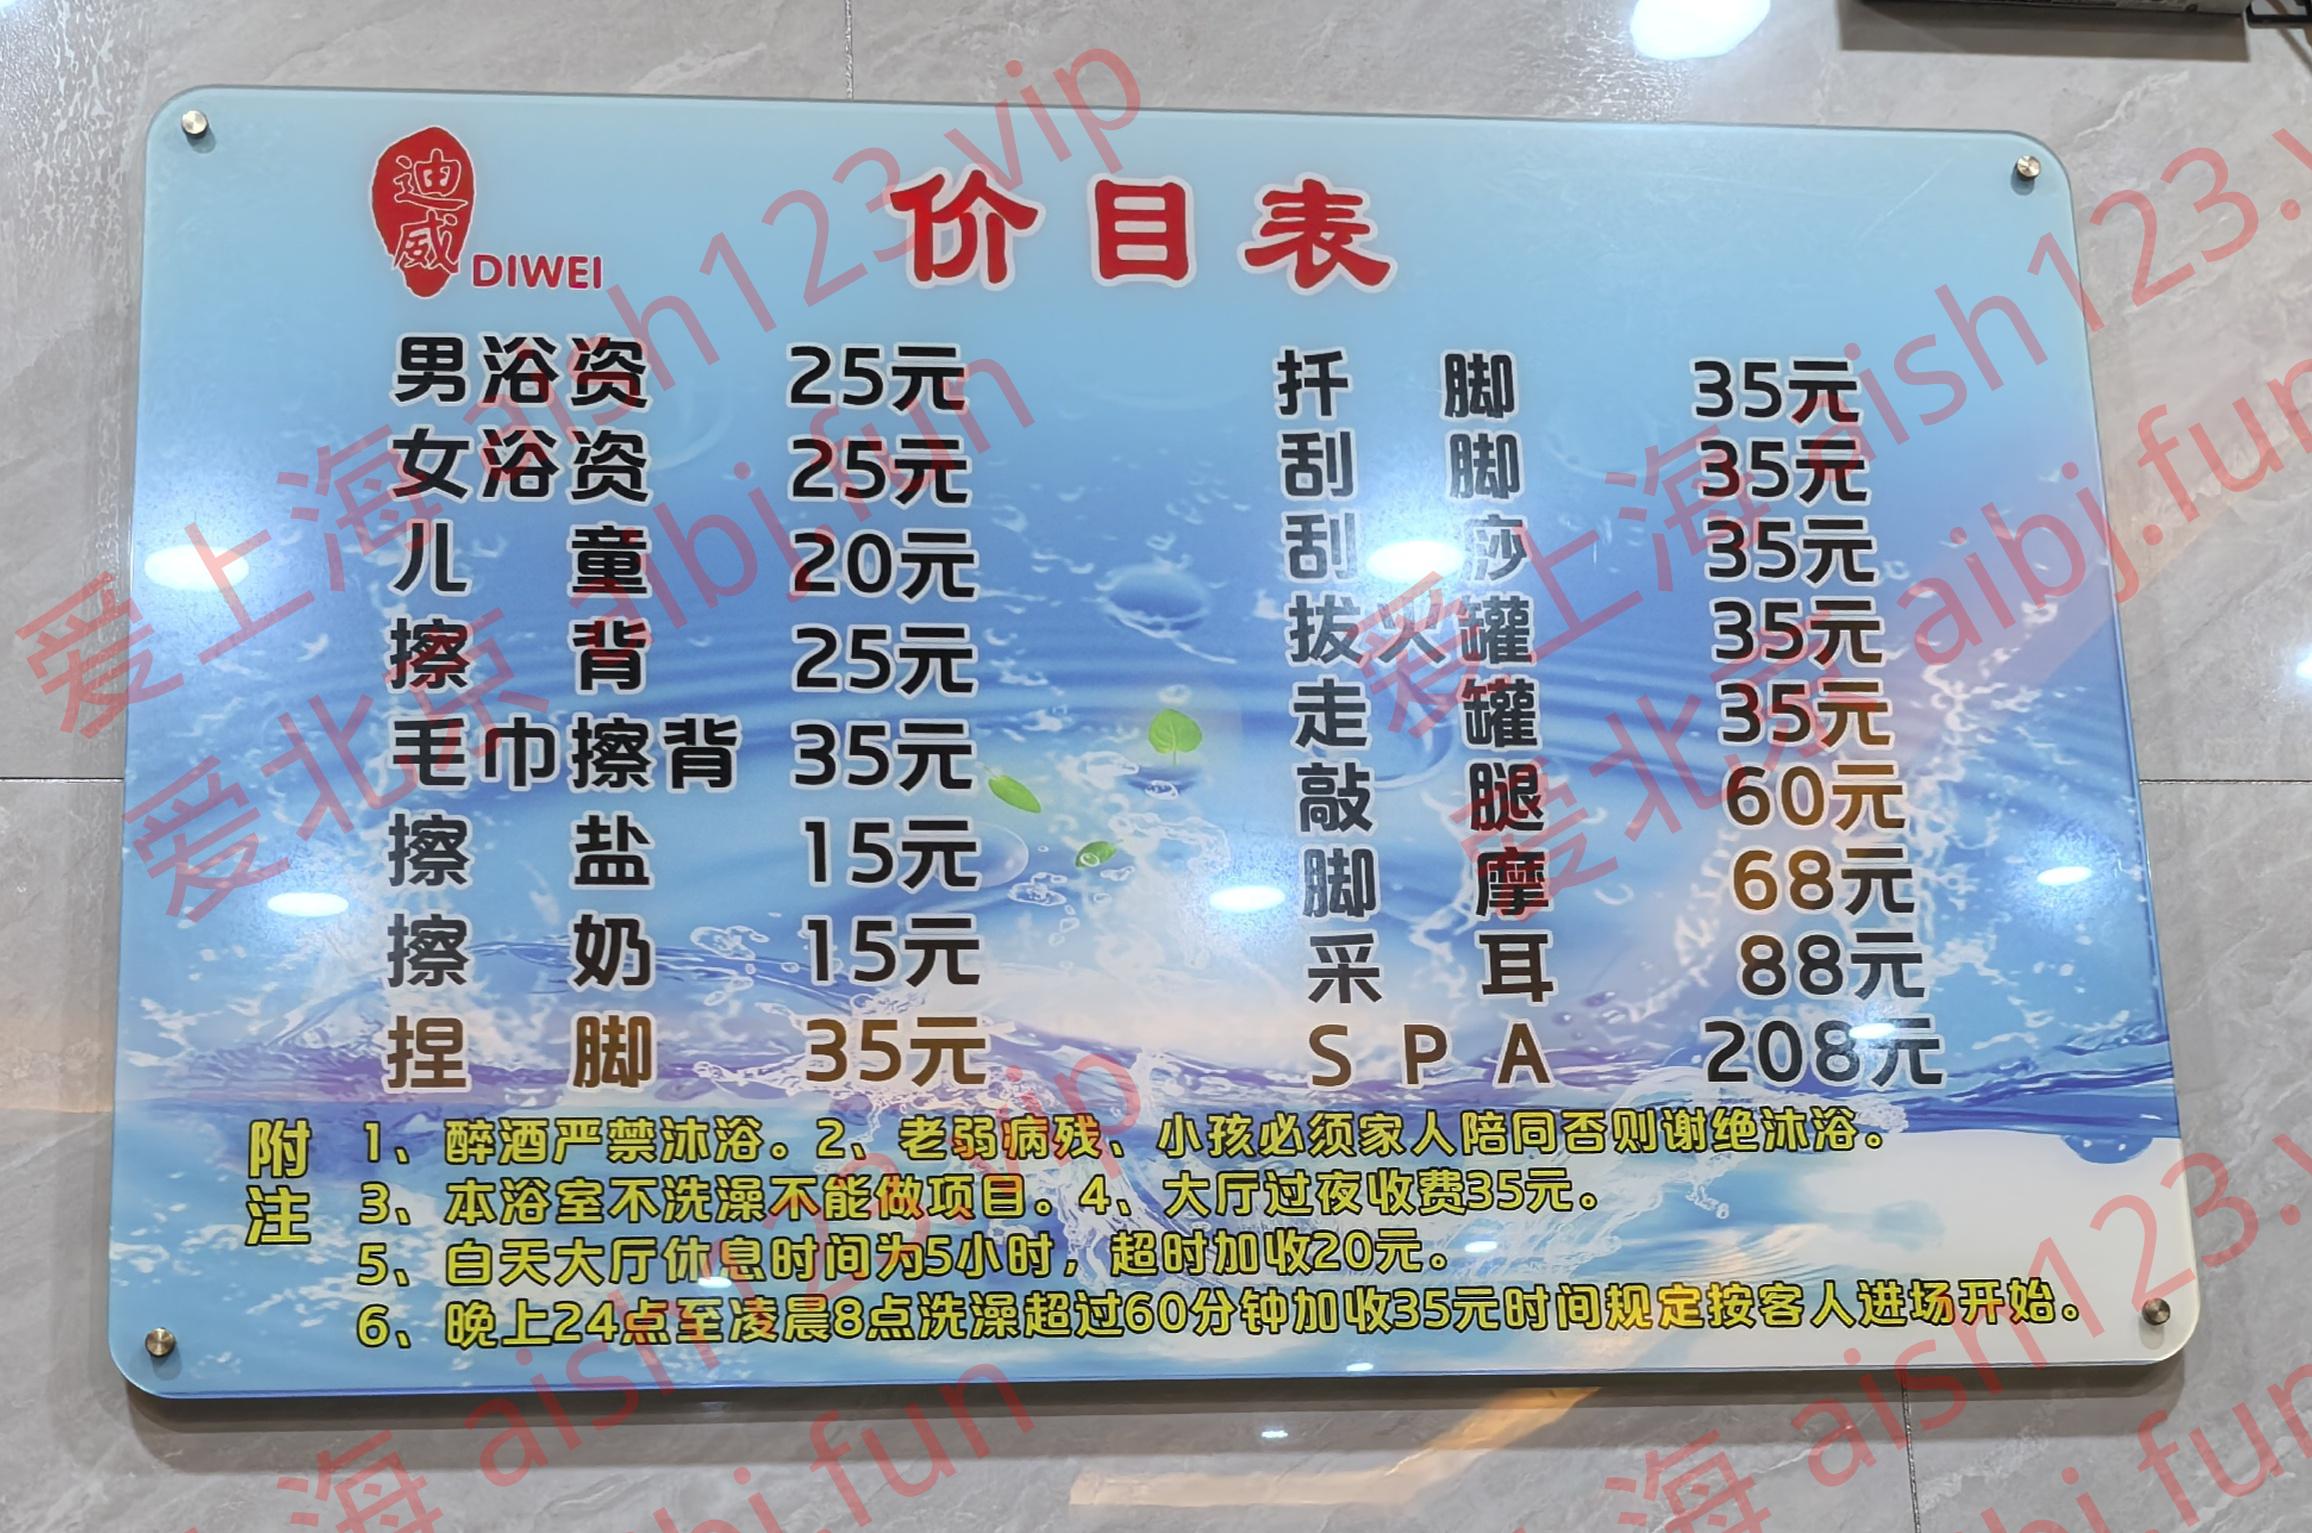 迪威
DIWEI
价目表
男浴资 25元
女浴资 25元
儿童 20元
擦背 25元
毛巾擦背 35元
擦盐 15元
擦奶 15元
捏脚 35元
扦脚 35元
刮脚 35元
刮痧 35元
拔火罐 35元
走罐 35元
敲腿 60元
脚摩 68元
采耳 88元
SPA 208元
附注
1、醉酒严禁沐浴。2、老弱病残、小孩必须家人陪同否则谢绝沐浴。
3、本浴室不洗澡不能做项目。4、大厅过夜收费35元。
5、白天大厅休息时间为5小时，超时加收20元。
6、晚上24点至凌晨8点洗澡超过60分钟加收35元时间规定按客人进场开始。
爱上海 aish123.vip
爱北京 aibj.fun
爱上海 aish123.v
爱北京 aibj.fun
海 aish123.vip
bj.fun
海 aish123.v
bj.fun